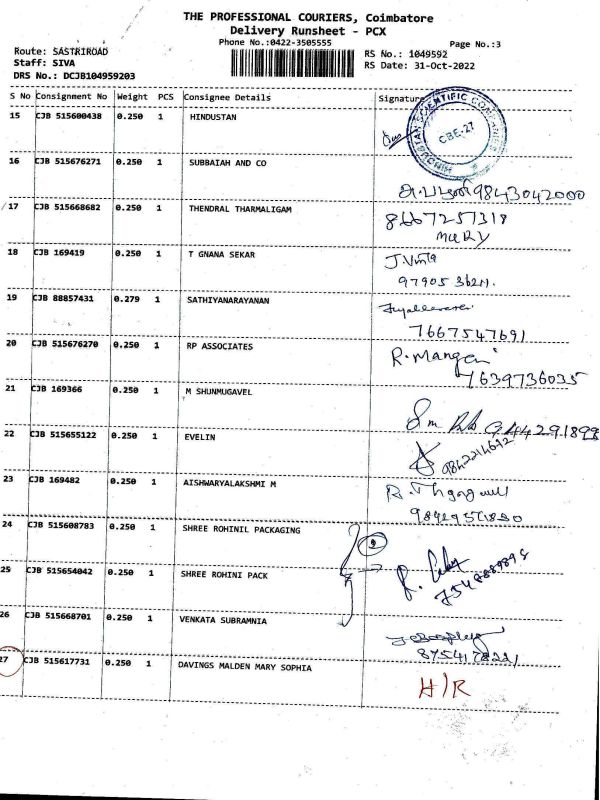 THE PROFESSIONAL COURIERS, Coimbatore
Delivery Runsheet - PCX
Phone No.:0422-3505555
Page No.:3
Route: SASTRIROAD
RS No.: 1049592
Staff: SIVA
RS Date: 31-Oct-2022
DRS No.: DCJB104959203
S No Consignment No Weight PCS Consignee Details Signature
15 CJB 515600438 0.250 1 HINDUSTAN
HINDUSTAN SCIENTIFIC COMPANIES
CBE-27
16 CJB 515676271 0.250 1 SUBBAIAH AND CO
9843042000
17 CJB 515668682 0.250 1 THENDRAL THARMALIGAM 8667257318
MARY
18 CJB 169419 0.250 1 T GNANA SEKAR
97905 36211.
19 CJB 88857431 0.279 1 SATHIYANARAYANAN
7667547691
20 CJB 515676270 0.250 1 RP ASSOCIATES R. Mangai
7639736035
21 CJB 169366 0.250 1 M SHUNMUGAVEL
22 CJB 515655122 0.250 1 EVELIN
23 CJB 169482 0.250 1 AISHWARYALAKSHMI M
24 CJB 515608783 0.250 1 SHREE ROHINIL PACKAGING
2
25 CJB 515654042 0.250 1 SHREE ROHINI PACK
26 CJB 515668701 0.250 1 VENKATA SUBRAMNIA
27 CJB 515617731 0.250 1 DAVINGS MALDEN MARY SOPHIA
H/R